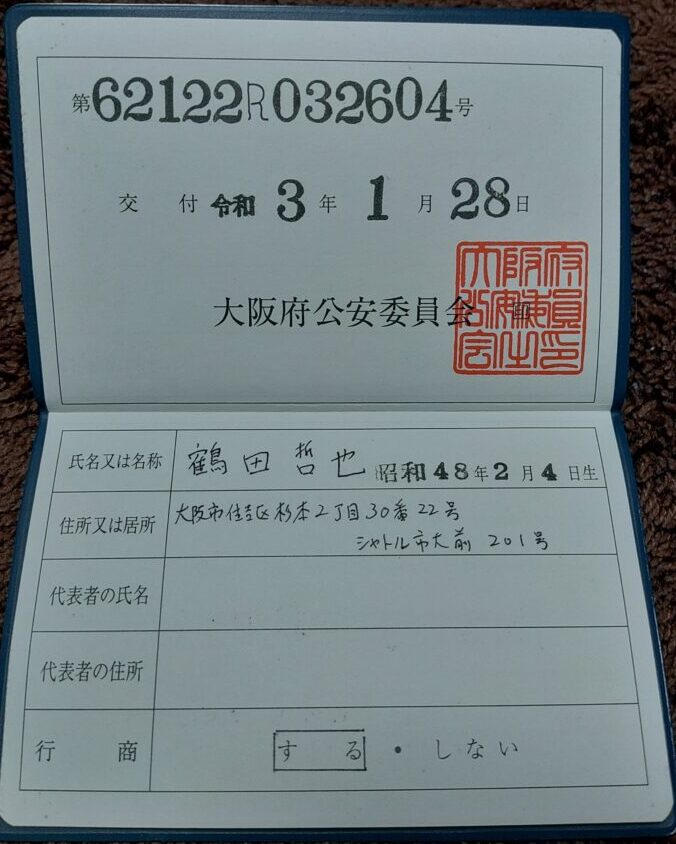 第62122R032604号
交付 令和3年1月28日
大阪府公安委員会 印
大阪府公安委員会之印
氏名又は名称 鶴田哲也 昭和48年2月4日生
住所又は居所 大阪市住吉区杉本2丁目30番22号
シャトル市大前 201号
代表者の氏名
代表者の住所
行商 する・しない